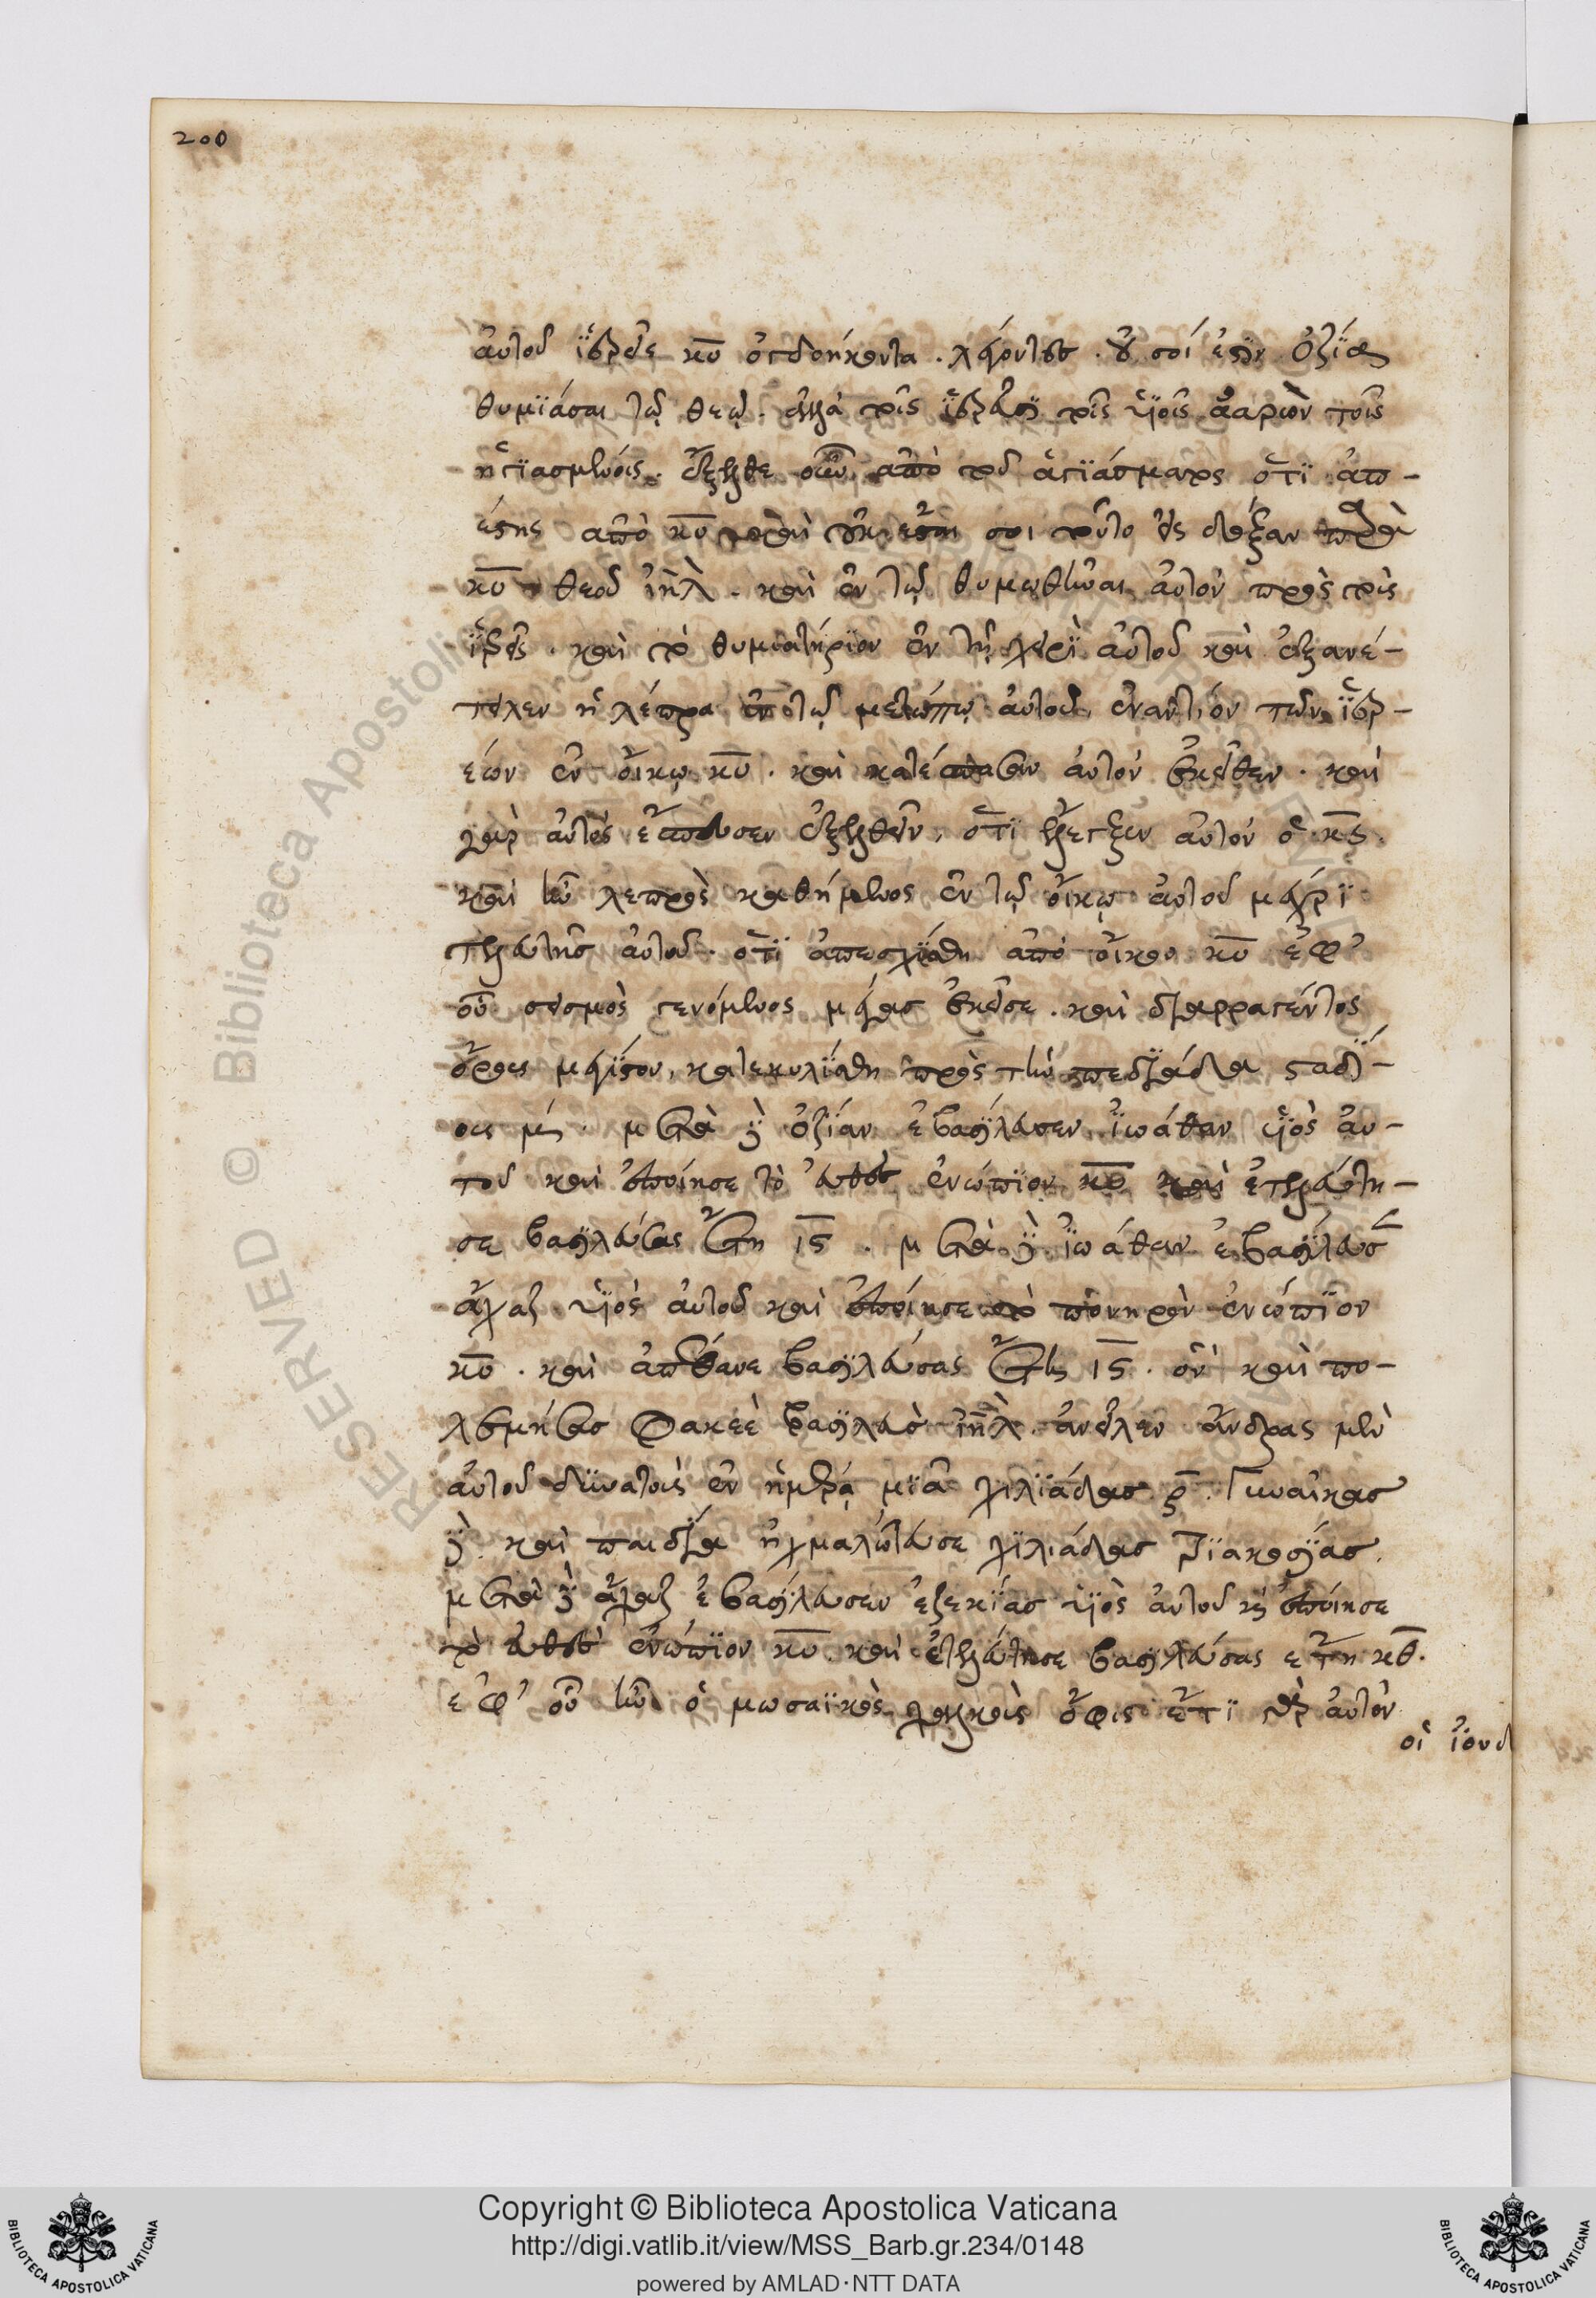 200
αὐτοῦ ἱερεῖς κυ ὀγδοήκοντα. λέγοντες. οὐ σοί ἐστιν Ὀζία
θυμϊάσαι τῷ θεῷ. ἀλλὰ τοῖς ἱερεῦσϊ τοῖς υἱοῖς ἀαρὼν τοῖς
ἡγϊασμένοις. ἔξελθε οὖν ἀπὸ τοῦ ἁγϊάσματος ὅτϊ ἀπ-
έστης ἀπὸ κυ καὶ οὐκ ἔσται σοι τοῦτο εἰς δόξαν παρὰ
κυ θεοῦ ἰηλ. καὶ ἐν τῷ θυμωθῆναι αὐτὸν πρὸς τοὺς
ἱερεῖς. καὶ τὸ θυμιατήρϊον ἐν τῇ χειρὶ αὐτοῦ καὶ ἐξανέ-
τειλεν ἡ λέπρα ἐν τῷ μετώπῳ αὐτοῦ, ἐναντίον τῶν ἱερ-
έων ἐν οἴκῳ κυ. καὶ κατέσπασαν αὐτὸν ἐκεῖθεν. καὶ
γὰρ αὐτὸς ἔσπευσεν ἐξελθεῖν, ὅτϊ ἤλεγξεν αὐτὸν ὁ κς.
καὶ ἦν λεπρὸς καθήμενος ἐν τῷ οἴκῳ αὐτοῦ μέχρϊ
τελευτῆς αὐτοῦ. ὅτϊ ἀπεσχίσθη ἀπὸ οἴκου κυ ἐφ’
οὗ σεισμὸς γενόμενος μέγας ἐκεῖσε. καὶ διαρραγέντος
ὄρους μεγίστου, κατεκυλίσθη πρὸς τὴν πεδιάδα σταδί-
ους. μετὰ δὲ ὀζίαν ἐβασίλευσεν ἰωάθαν υἱὸς αὐ-
τοῦ καὶ ἐποίησε τὸ εὐθὲς ἐνώπϊον κυ καὶ ἐτελεύτη-
σε βασϊλεύσας ἔτη ις. μετὰ δὲ ἰωάθαν ἐβασίλευσε
ἄχαζ υἱὸς αὐτοῦ καὶ ἐποίησε τὸ πονηρὸν ἐνώπϊον
κυ. καὶ ἀπέθανε βασϊλεύσας ἔτη ις. ὃν καὶ πο-
λεμήσας Φακεὲ βασϊλεὺς ἰηλ ἀνεῖλεν ἄνδρας μὲν
αὐτοῦ δϋνατοὺς ἐν ἡμέρᾳ μϊᾷ χιλϊάδας ρ. Γυναῖκας
δὲ καὶ παιδία ᾐχμαλώτευσε χϊλιάδας διακοσίας.
μετὰ δὲ ἄχαζ ἐβασίλευσεν ἐζεκίας υἱὸς αὐτοῦ καὶ ἐποίησε
τὸ εὐθὲς ἐνώπϊον κυ. καὶ ἐτελεύτησε βασϊλεύσας ἔτη κθ.
ἐφ’ οὗ ἦν ὁ μωσαϊκὸς χαλκοῦς ὄφις ἔτϊ
οἱ ἰουδ
RESERVED © Biblioteca Apostolica
Copyright © Biblioteca Apostolica Vaticana
http://digi.vatlib.it/view/MSS_Barb.gr.234/0148
powered by AMLAD·NTT DATA
BIBLIOTECA APOSTOLICA VATICANA
BIBLIOTECA APOSTOLICA VATICANA